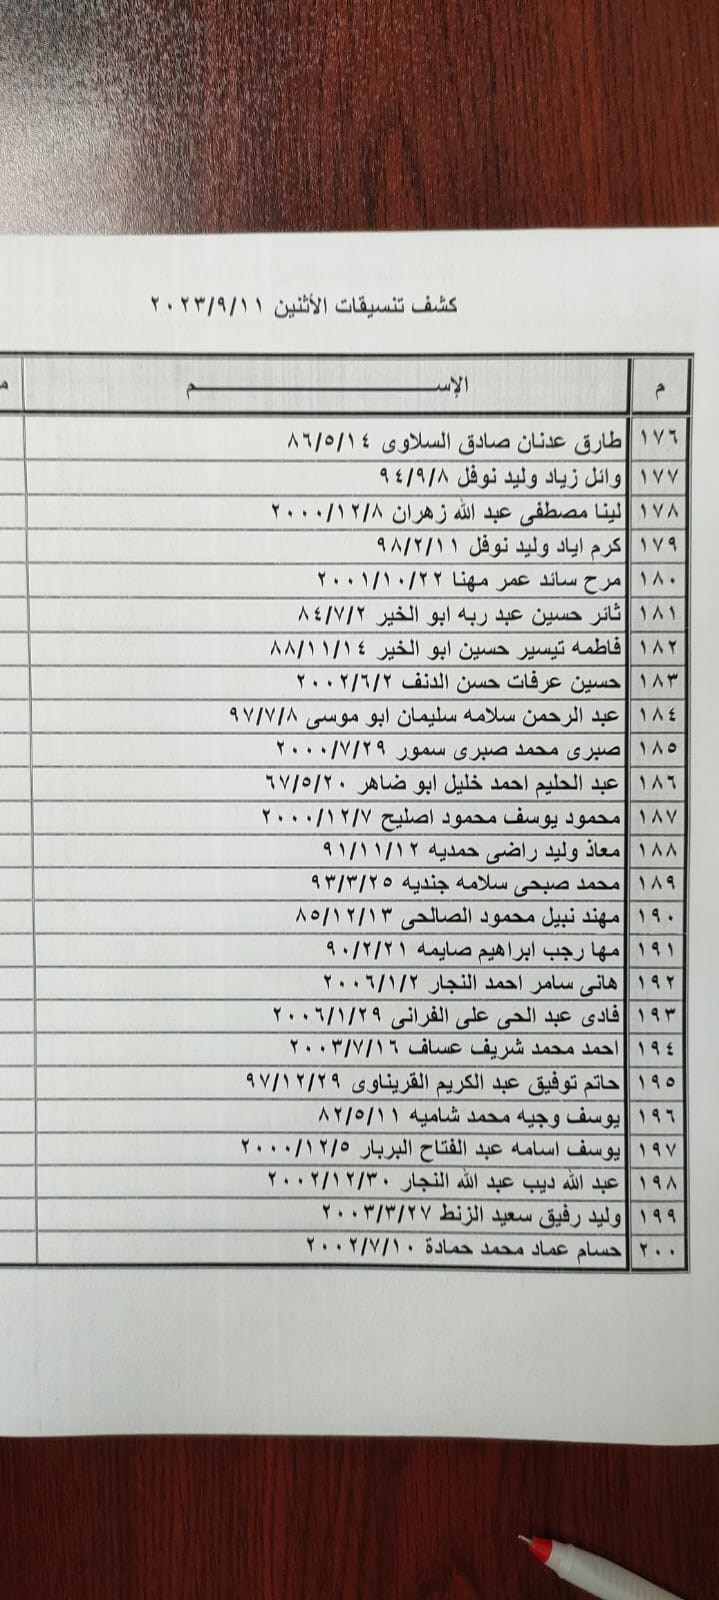 كشف تنسيقات الأثنين ٢٠٢٣/٩/١١
م الإســــــــــم م
١٧٦ طارق عدنان صادق السلاوى ٨٦/٥/١٤
١٧٧ وائل زياد وليد نوفل ٩٤/٩/٨
١٧٨ لينا مصطفى عبد الله زهران ٢٠٠٠/١٢/٨
١٧٩ كرم اياد وليد نوفل ٩٨/٢/١١
١٨٠ مرح سائد عمر مهنا ٢٠٠١/١٠/٢٢
١٨١ ثائر حسين عبد ربه ابو الخير ٨٤/٧/٢
١٨٢ فاطمه تيسير حسين ابو الخير ٨٨/١١/١٤
١٨٣ حسين عرفات حسن الدنف ٢٠٠٢/٦/٢
١٨٤ عبد الرحمن سلامه سليمان ابو موسى ٩٧/٧/٨
١٨٥ صبرى محمد صبرى سمور ٢٠٠٠/٧/٢٩
١٨٦ عبد الحليم احمد خليل ابو ضاهر ٦٧/٥/٢٠
١٨٧ محمود يوسف محمود اصليح ٢٠٠٠/١٢/٧
١٨٨ معاذ وليد راضى حمديه ٩١/١١/١٢
١٨٩ محمد صبحى سلامه جنديه ٩٣/٣/٢٥
١٩٠ مهند نبيل محمود الصالحى ٨٥/١٢/١٣
١٩١ مها رجب ابراهيم صايمه ٩٠/٢/٢١
١٩٢ هانى سامر احمد النجار ٢٠٠٦/١/٢
١٩٣ فادى عبد الحى على الفرانى ٢٠٠٦/١/٢٩
١٩٤ احمد محمد شريف عساف ٢٠٠٣/٧/١٦
١٩٥ حاتم توفيق عبد الكريم القريناوى ٩٧/١٢/٢٩
١٩٦ يوسف وجيه محمد شاميه ٨٢/٥/١١
١٩٧ يوسف اسامه عبد الفتاح البربار ٢٠٠٠/١٢/٥
١٩٨ عبد الله ديب عبد الله النجار ٢٠٠٢/١٢/٣٠
١٩٩ وليد رفيق سعيد الزنط ٢٠٠٣/٣/٢٧
٢٠٠ حسام عماد محمد حمادة ٢٠٠٢/٧/١٠